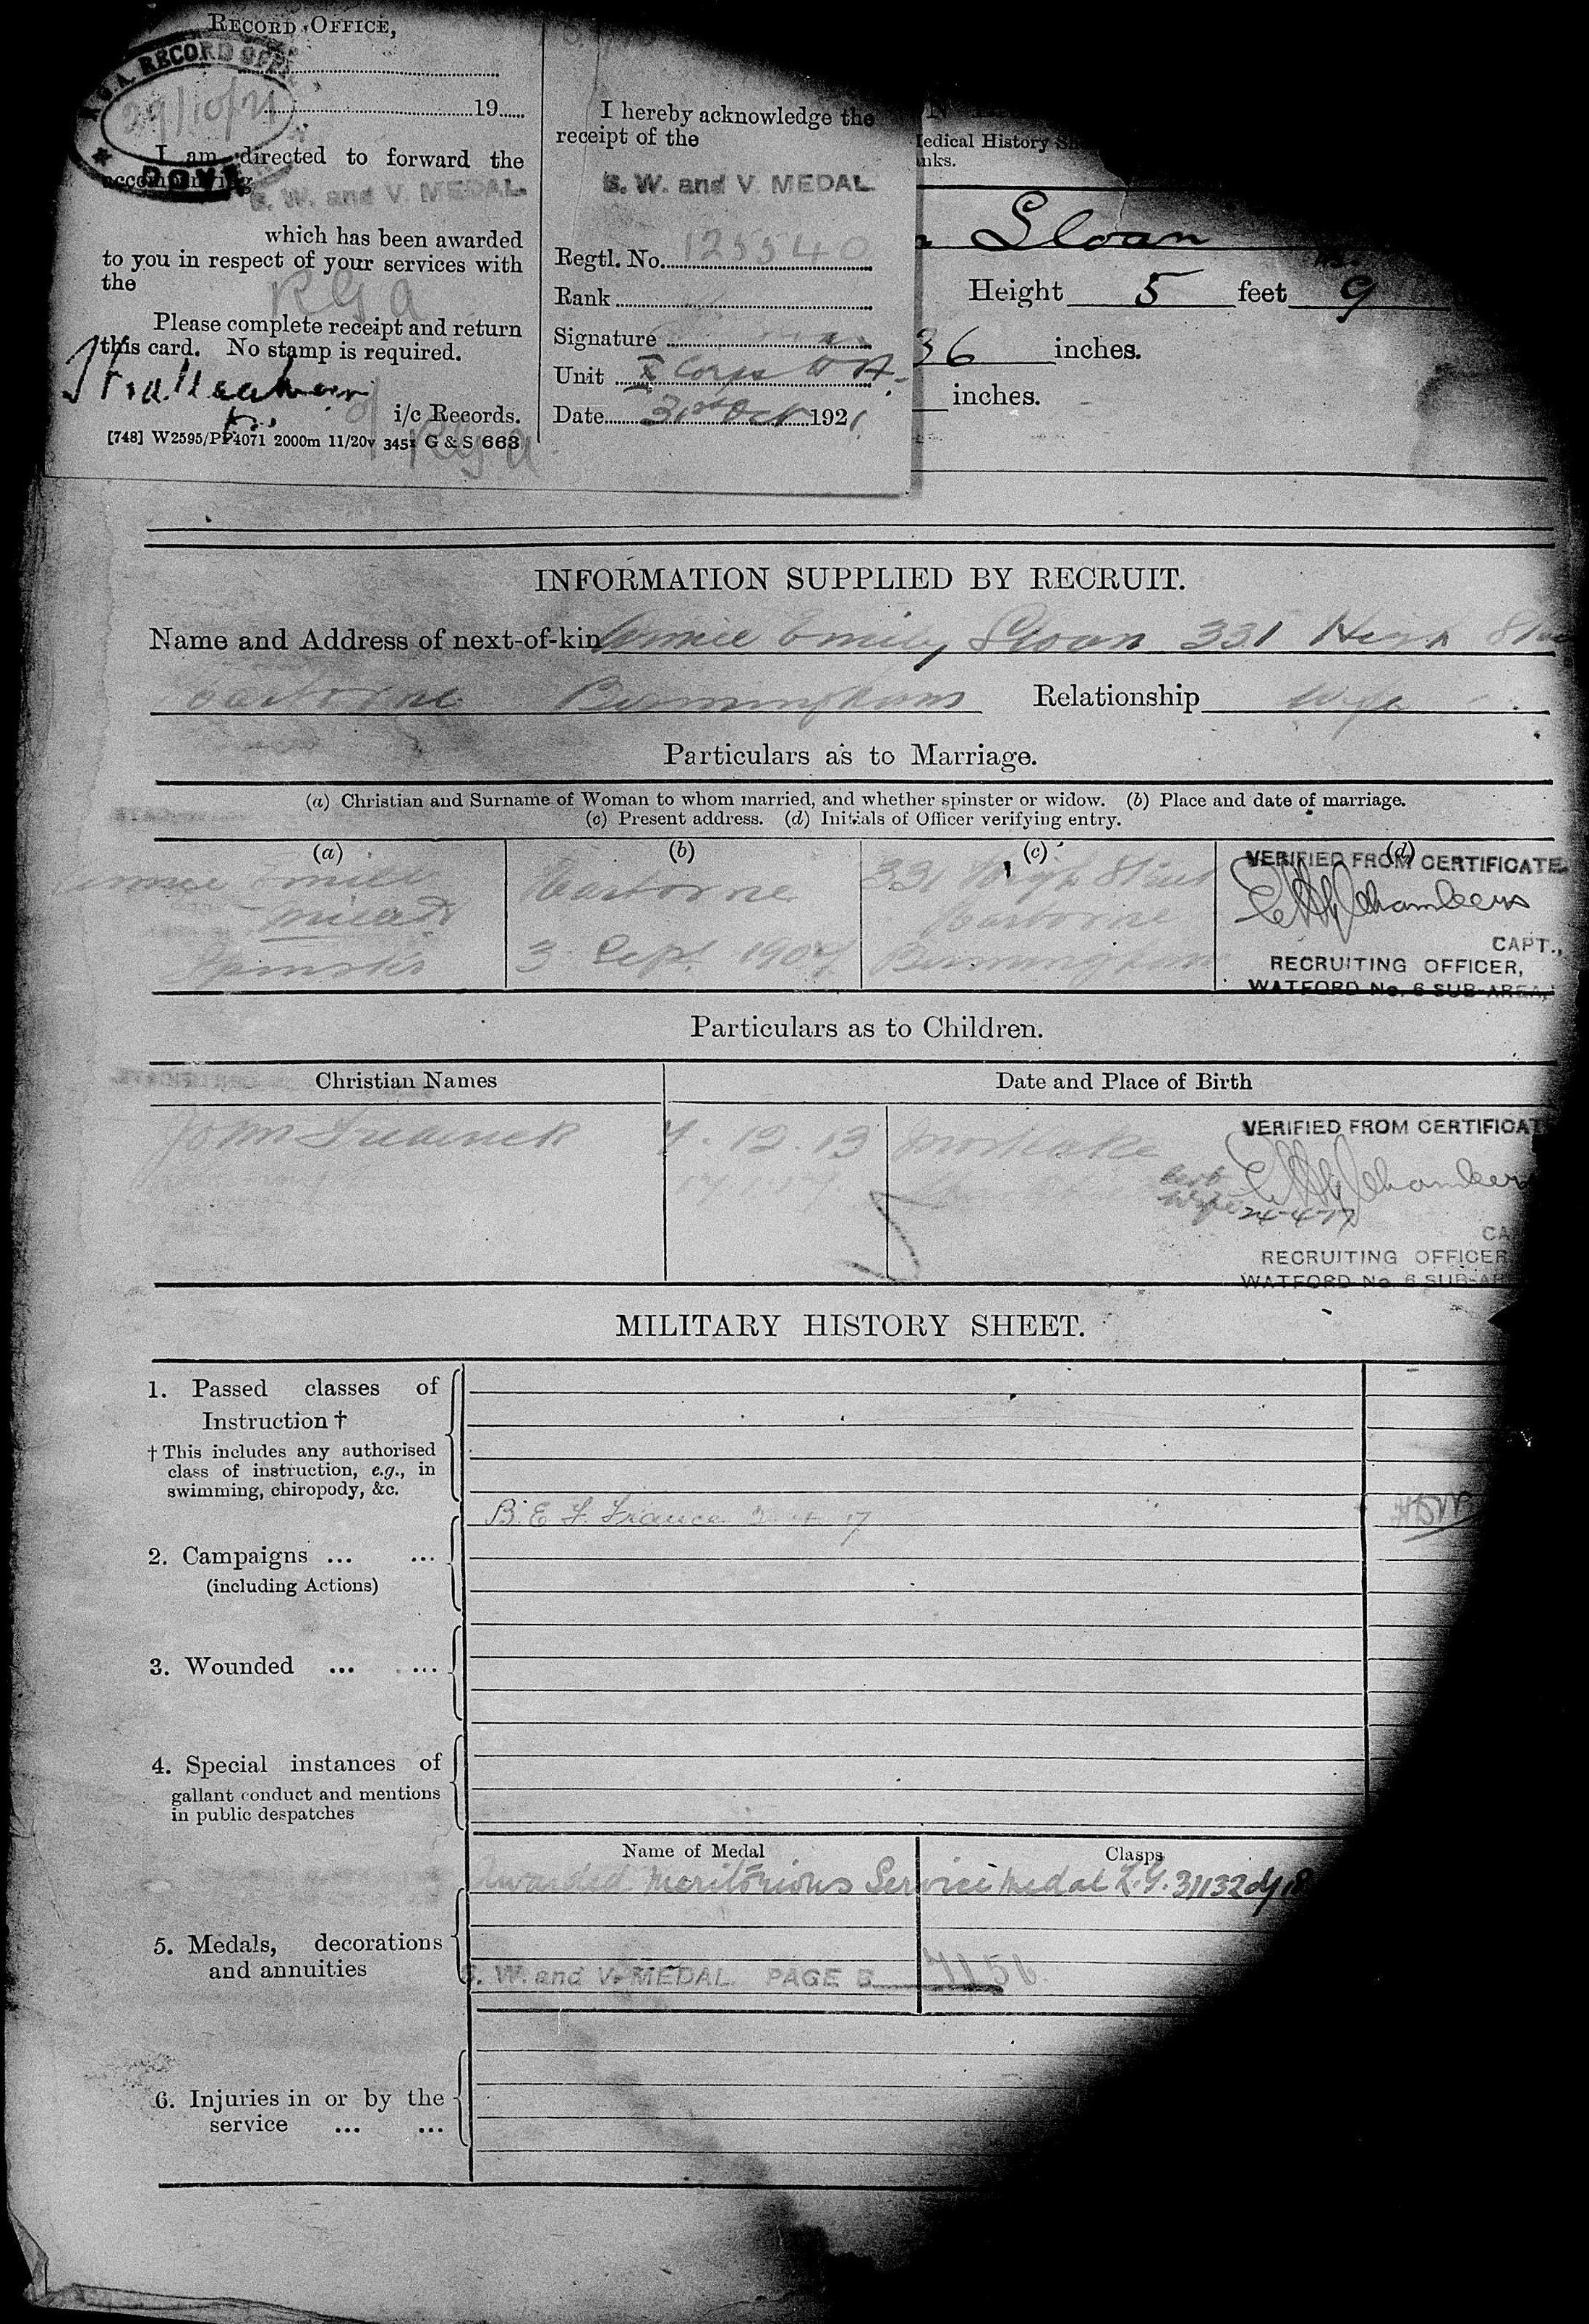 RECORD OFFICE,
R.G.A. RECORD OFFI
29/10/21
19
DOVE
I am directed to forward the
accompanying
B. W. and V. MEDAL.
which has been awarded
to you in respect of your services with
the
R G A
Please complete receipt and return
this card. No stamp is required.
i/c Records.
R G A
[748] W2595/PP4071 2000m 11/20v 345s G & S 663
I hereby acknowledge the
receipt of the
B. W. and V. MEDAL
Regtl. No. 125540
Rank
Signature
Unit X Corps H A.
Date 31st Oct 1921
edical History
nks.
Sloan
Height 5 feet 9
36 inches.
inches.
INFORMATION SUPPLIED BY RECRUIT.
Name and Address of next-of-kin Annie Emily Sloan 331 High Stre
Harborne Birmingham Relationship Wife
Particulars as to Marriage.
(a) Christian and Surname of Woman to whom married, and whether spinster or widow. (b) Place and date of marriage.
(c) Present address. (d) Initials of Officer verifying entry.
(a) (b) (c) (d)
Annie Emily
Spinster
Harborne
3 Sept. 190
331 High Street
Harborne
Birmingham
VERIFIED FROM CERTIFICATE.
Chambers
CAPT.,
RECRUITING OFFICER,
WATFORD No. 6 SUB-AREA,
Particulars as to Children.
Christian Names Date and Place of Birth
John Frederick 7.12.13 Mortlake
VERIFIED FROM CERTIFICAT
Chambers
24-4-17
CA
RECRUITING OFFICER
WATFORD No. 6 SUB-AR
MILITARY HISTORY SHEET.
1. Passed classes of
Instruction †
† This includes any authorised
class of instruction, e.g., in
swimming, chiropody, &c.
B. E. F. France 17
2. Campaigns ... ...
(including Actions)
3. Wounded ... ...
4. Special instances of
gallant conduct and mentions
in public despatches
Name of Medal Clasps
Awarded Meritorious Service Medal L.G. 31132 d/18
5. Medals, decorations
and annuities
B. W. and V. MEDAL. PAGE B 7156
6. Injuries in or by the
service ... ...